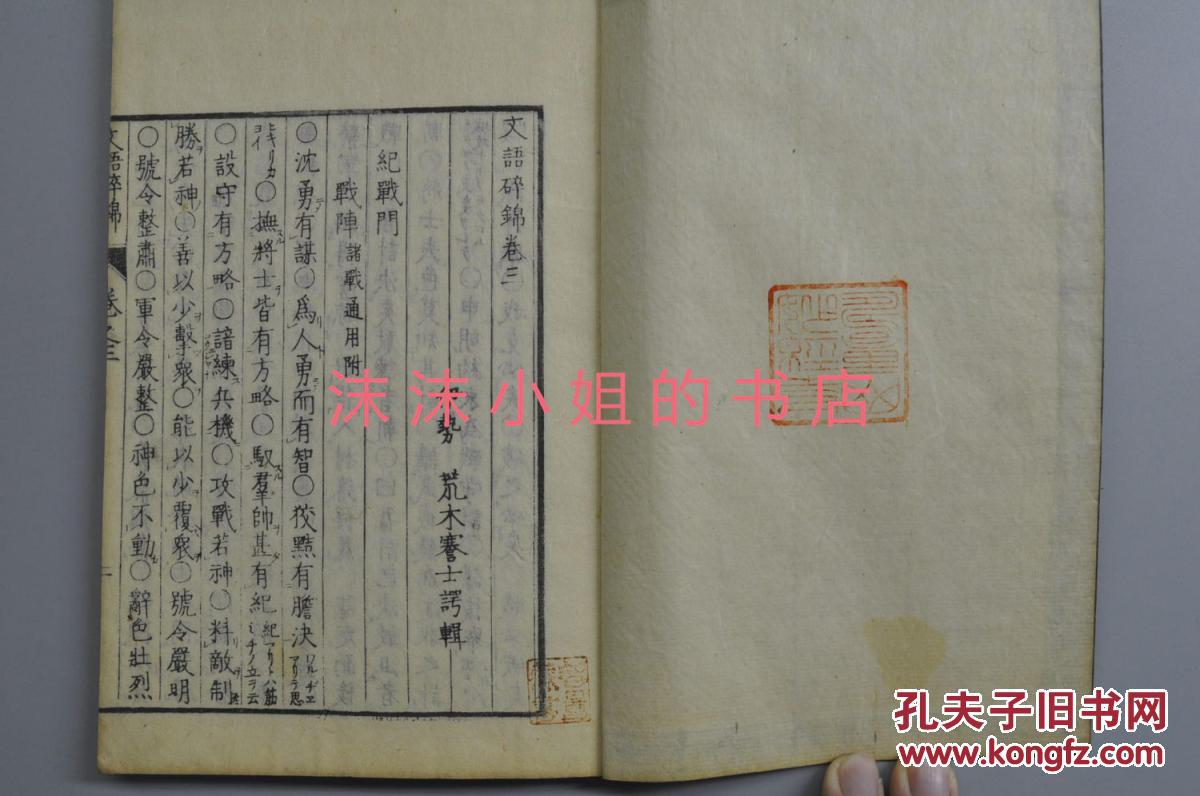 文語碎錦卷三
勢　荒木蹇士諤輯
紀戰門
戰陣 諸戰通用附
○沈勇有謀○爲人勇而有智○狡黠有膽決 ワルヂエアリテ思
ヒキリカヨイ○撫將士皆有方略○馭羣帥甚有紀 紀アリトハ筋ミチノ立ヲ云
○設守有方略○諳練兵機○攻戰若神○料敵制
勝若神○善以少擊衆○能以少覆衆○號令嚴明
○號令整肅○軍令嚴整○神色不動○辭色壯烈
文語碎錦
卷之三
沫沫小姐的书店
孔夫子旧书网
www.kongfz.com